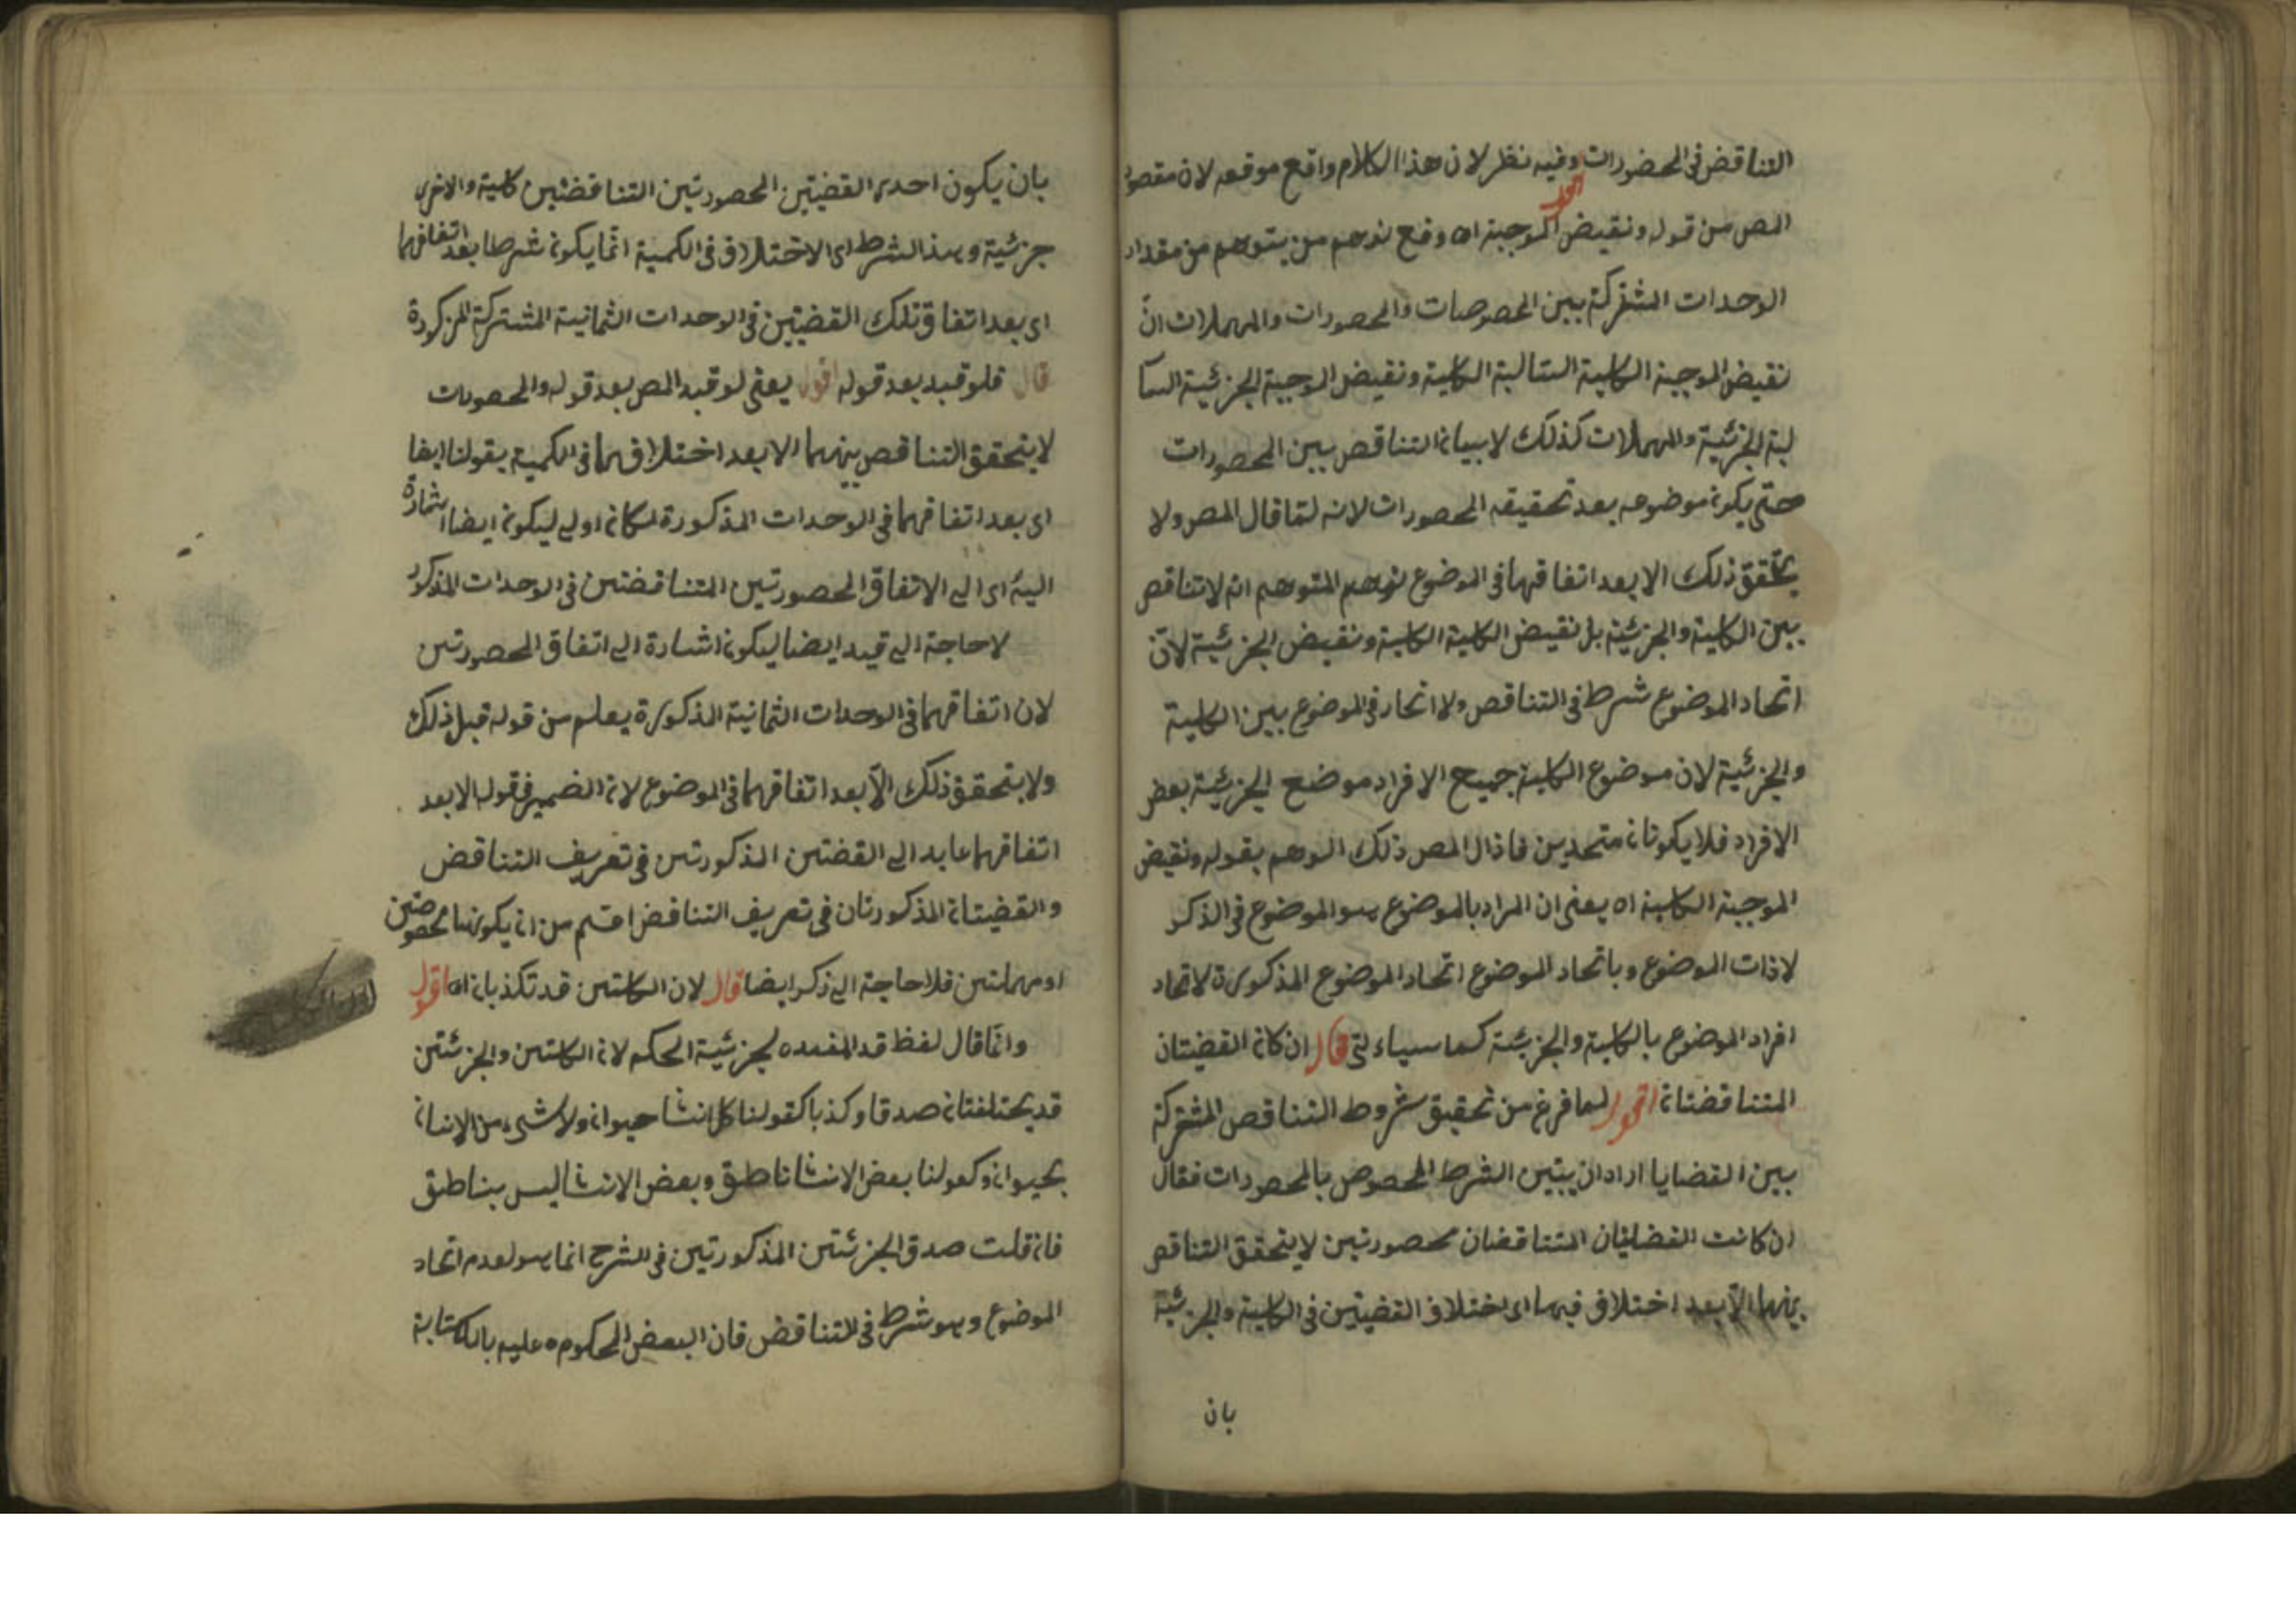 التناقض في المحصورات وفيه نظر لان هذا الكلام واقع موقعه لان مقصود
اقول
المص من قوله ونقيض الموجبة اه دفع توهم من يتوهم من مقدار
الوحدات المشتركة بين المخصوصات والمحصورات والمهملات انّ
نقيض الموجبة الكلية السالبة الكلية ونقيض الموجبة الجزئية السا
لبة الجزئية والمهملات كذلك لا بيان التناقض بين المحصورات
حتى يكون موضوعه بعد تحقيقه المحصورات لانه لمّا قال المص ولا
يتحقق ذلك الا بعد اتفاقهما في الموضوع توهم المتوهم انه لا تناقض
بين الكلية والجزئية بل نقيض الكلية الكلية ونقيض الجزئية لانّ
اتحاد الموضوع شرط في التناقض ولا اتحاد في الموضوع بين الكلية
والجزئية لان موضوع الكلية جميع الافراد موضع الجزئية بعض
الافراد فلا يكونان متحدين فاذال المص ذلك الوهم بقوله ونقيض
الموجبة الكلية اه يعنى ان المراد بالموضوع هو الموضوع في الذكر
لا ذات الموضوع وباتحاد الموضوع اتحاد الموضوع المذكورة لا اتحاد
افراد الموضوع بالكلية والجزئية كما سياءتى قال ان كان القضيتان
المتناقضتان اقول لما فرغ من تحقيق شروط التناقض المشتركة
بين القضايا اراد ان يبيّن الشرط المخصوص بالمحصورات فقال
ان كانت القضيتان المتناقضان محصورتين لا يتحقق التناقض
بينهما الّا بعد اختلاف فيهما اى اختلاف القضيتين في الكلية والجزئية
بان
بان يكون احدى القضيتين المحصورتين التناقضتين كلية والاخرى
جزئية وهذا الشرط اى الاختلاف في الكمية انّما يكون شرطا بعد اتفاقهما
اى بعد اتفاق تلك القضيتين في الوحدات الثمانية المشتركة المذكورة
قال فلو قيد بعد قوله اقول يعنى لو قيد المص بعد قوله والمحصورات
لا يتحقق التناقض بينهما الا بعد اختلافهما في الكمية بقولنا ايضا
اى بعد اتفاقهما في الوحدات المذكورة لكان اولى ليكون ايضا اشارة
اليه اى الى الاتفاق المحصورتين المتناقضتين في الوحدات المذكور
لا حاجة الى قيد ايضا ليكون اشارة الى اتفاق المحصورتين
لان اتفاقهما في الوحدات الثمانية المذكورة يعلم من قوله قبل ذلك
ولا يتحقق ذلك الّا بعد اتفاقهما في الموضوع لان الضمير في قوله الا بعد
اتفاقهما عايد الى القضتين المذكورتين في تعريف التناقض
والقضيتان المذكورتان في تعريف التناقض اعم من ان يكونهما مخصوصتين
او مهملتين فلا حاجة الى ذكر ايضا قال لان الكليتين قد تكذبان اه اقول
وانما قال لفظ قد المفيده لجزئية الحكم لان الكليتين والجزئتين
قد يختلفتان صدقا وكذبا كقولنا كل انسا حيوان ولا شىء من الانسان
بحيوان وكقولنا بعض الانسا ناطق وبعض الانسا ليس بناطق
فان قلت صدق الجزئتين المذكورتين في الشرح انما هو لعدم اتحاد
الموضوع وهو شرط في التناقض فان البعض المحكوم عليه بالكتابة